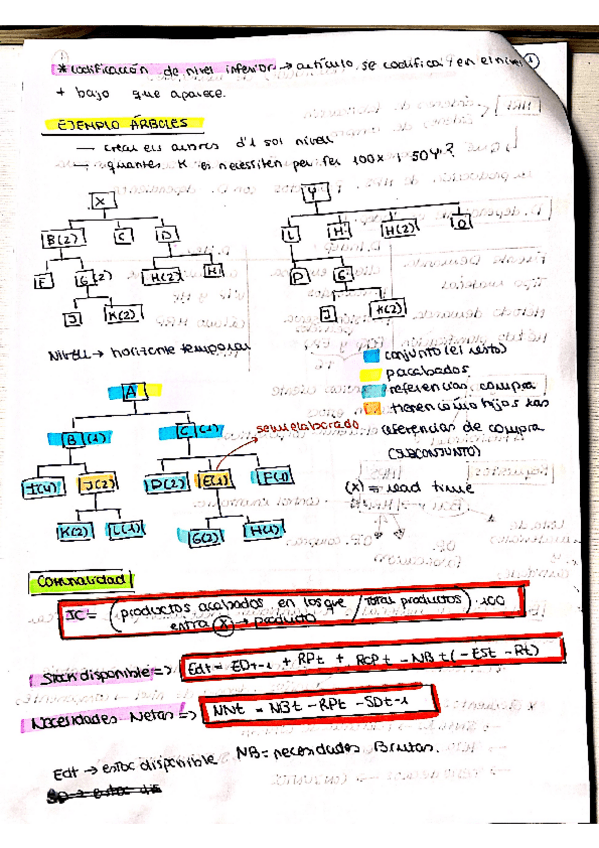 * codificación de nivel inferior → artículo se codifica en el nivel
+ bajo que aparece.
EJEMPLO ÁRBOLES
→ crear els arbres d'1 sol nivell
→ quantes K es necessiten per fer 100x i 50Y?
X
Y
B(2) C D
L H H(2) O
F G(2) H(2) H
P G
J K(2)
J K(2)
Nivell → horizonte temporal
conjunto (el resto)
p acabados
referencias compra
tienen como hijos las
referencias de compra
(SUBCONJUNTO)
(x) = lead time
A
B(1) C(1)
semielaborado
I(4) J(2) D(2) E(1) F(1)
K(2) L(1) G(2) H(1)
Comunalidad
IC = (productos acabados en los que entra (X) → producto / Total productos) · 100
Stock disponible => Edt = EDt-1 + RPt + RCPt - NBt (-ESt - Rt)
Necesidades Netas => NNt = NBt - RPt - SDt-1
Edt → estoc disponible NB = necesidades Brutas.